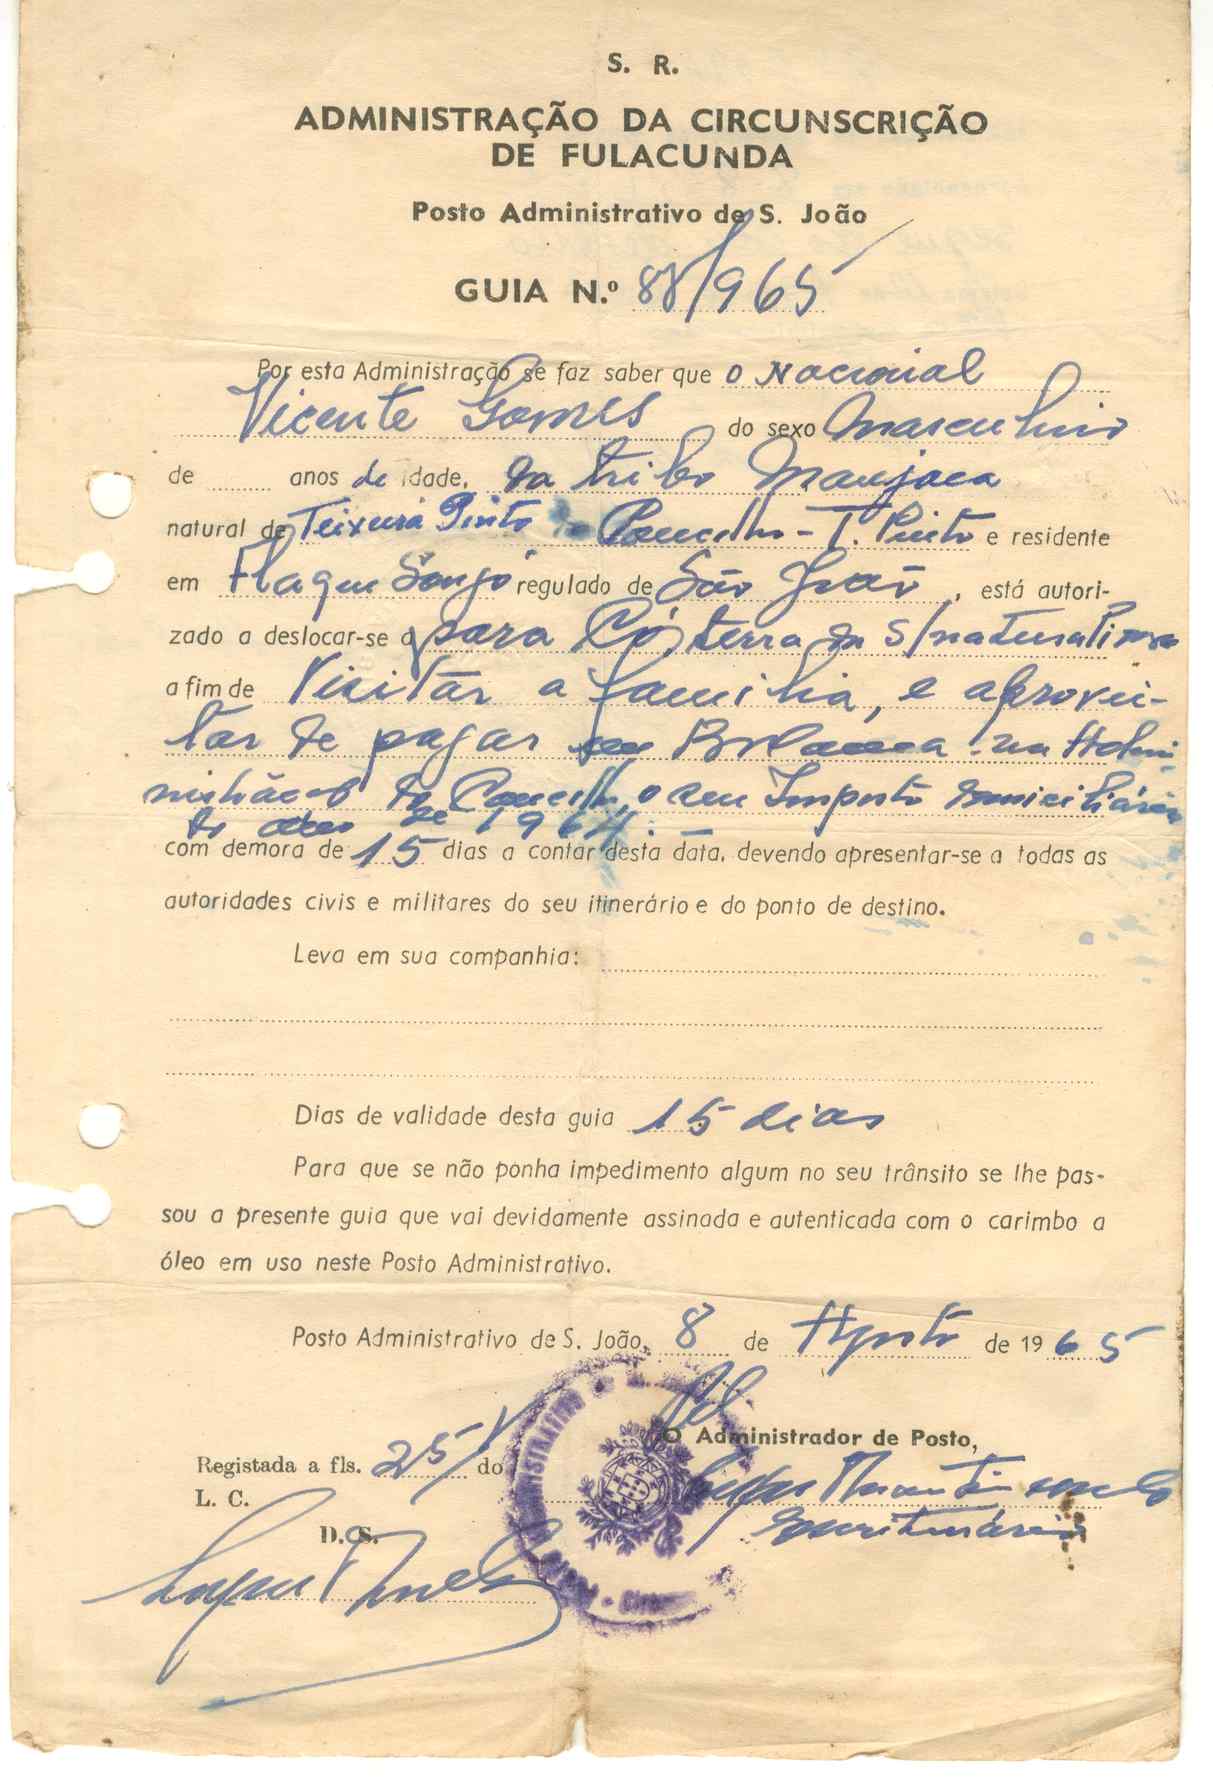 S. R.
ADMINISTRAÇÃO DA CIRCUNSCRIÇÃO
DE FULACUNDA
Posto Administrativo de S. João
GUIA N.º 88/965
Por esta Administração se faz saber que o Nacional
Vicente Gomes do sexo Masculino
de anos de idade, da tribo Manjaca
natural de Teixeira Pinto Concelho - T. Pinto e residente
em Flaque regulado de São João, está autori-
zado a deslocar-se a para Có, terra da s/naturalidade
a fim de Visitar a familia, e aprovei-
tar de pagar em Bolama na Admi-
nistração do Concelho, o seu Imposto domiciliário
do ano de 1964. —
com demora de 15 dias a contar desta data, devendo apresentar-se a todas as
autoridades civis e militares do seu itinerário e do ponto de destino.
Leva em sua companhia:
Dias de validade desta guia 15 dias
Para que se não ponha impedimento algum no seu trânsito se lhe pas-
sou a presente guia que vai devidamente assinada e autenticada com o carimbo a
óleo em uso neste Posto Administrativo.
Posto Administrativo de S. João, 8 de Agosto de 1965
O Administrador de Posto,
Registada a fls. 25/V do
L. C.
escriturário
D. S.